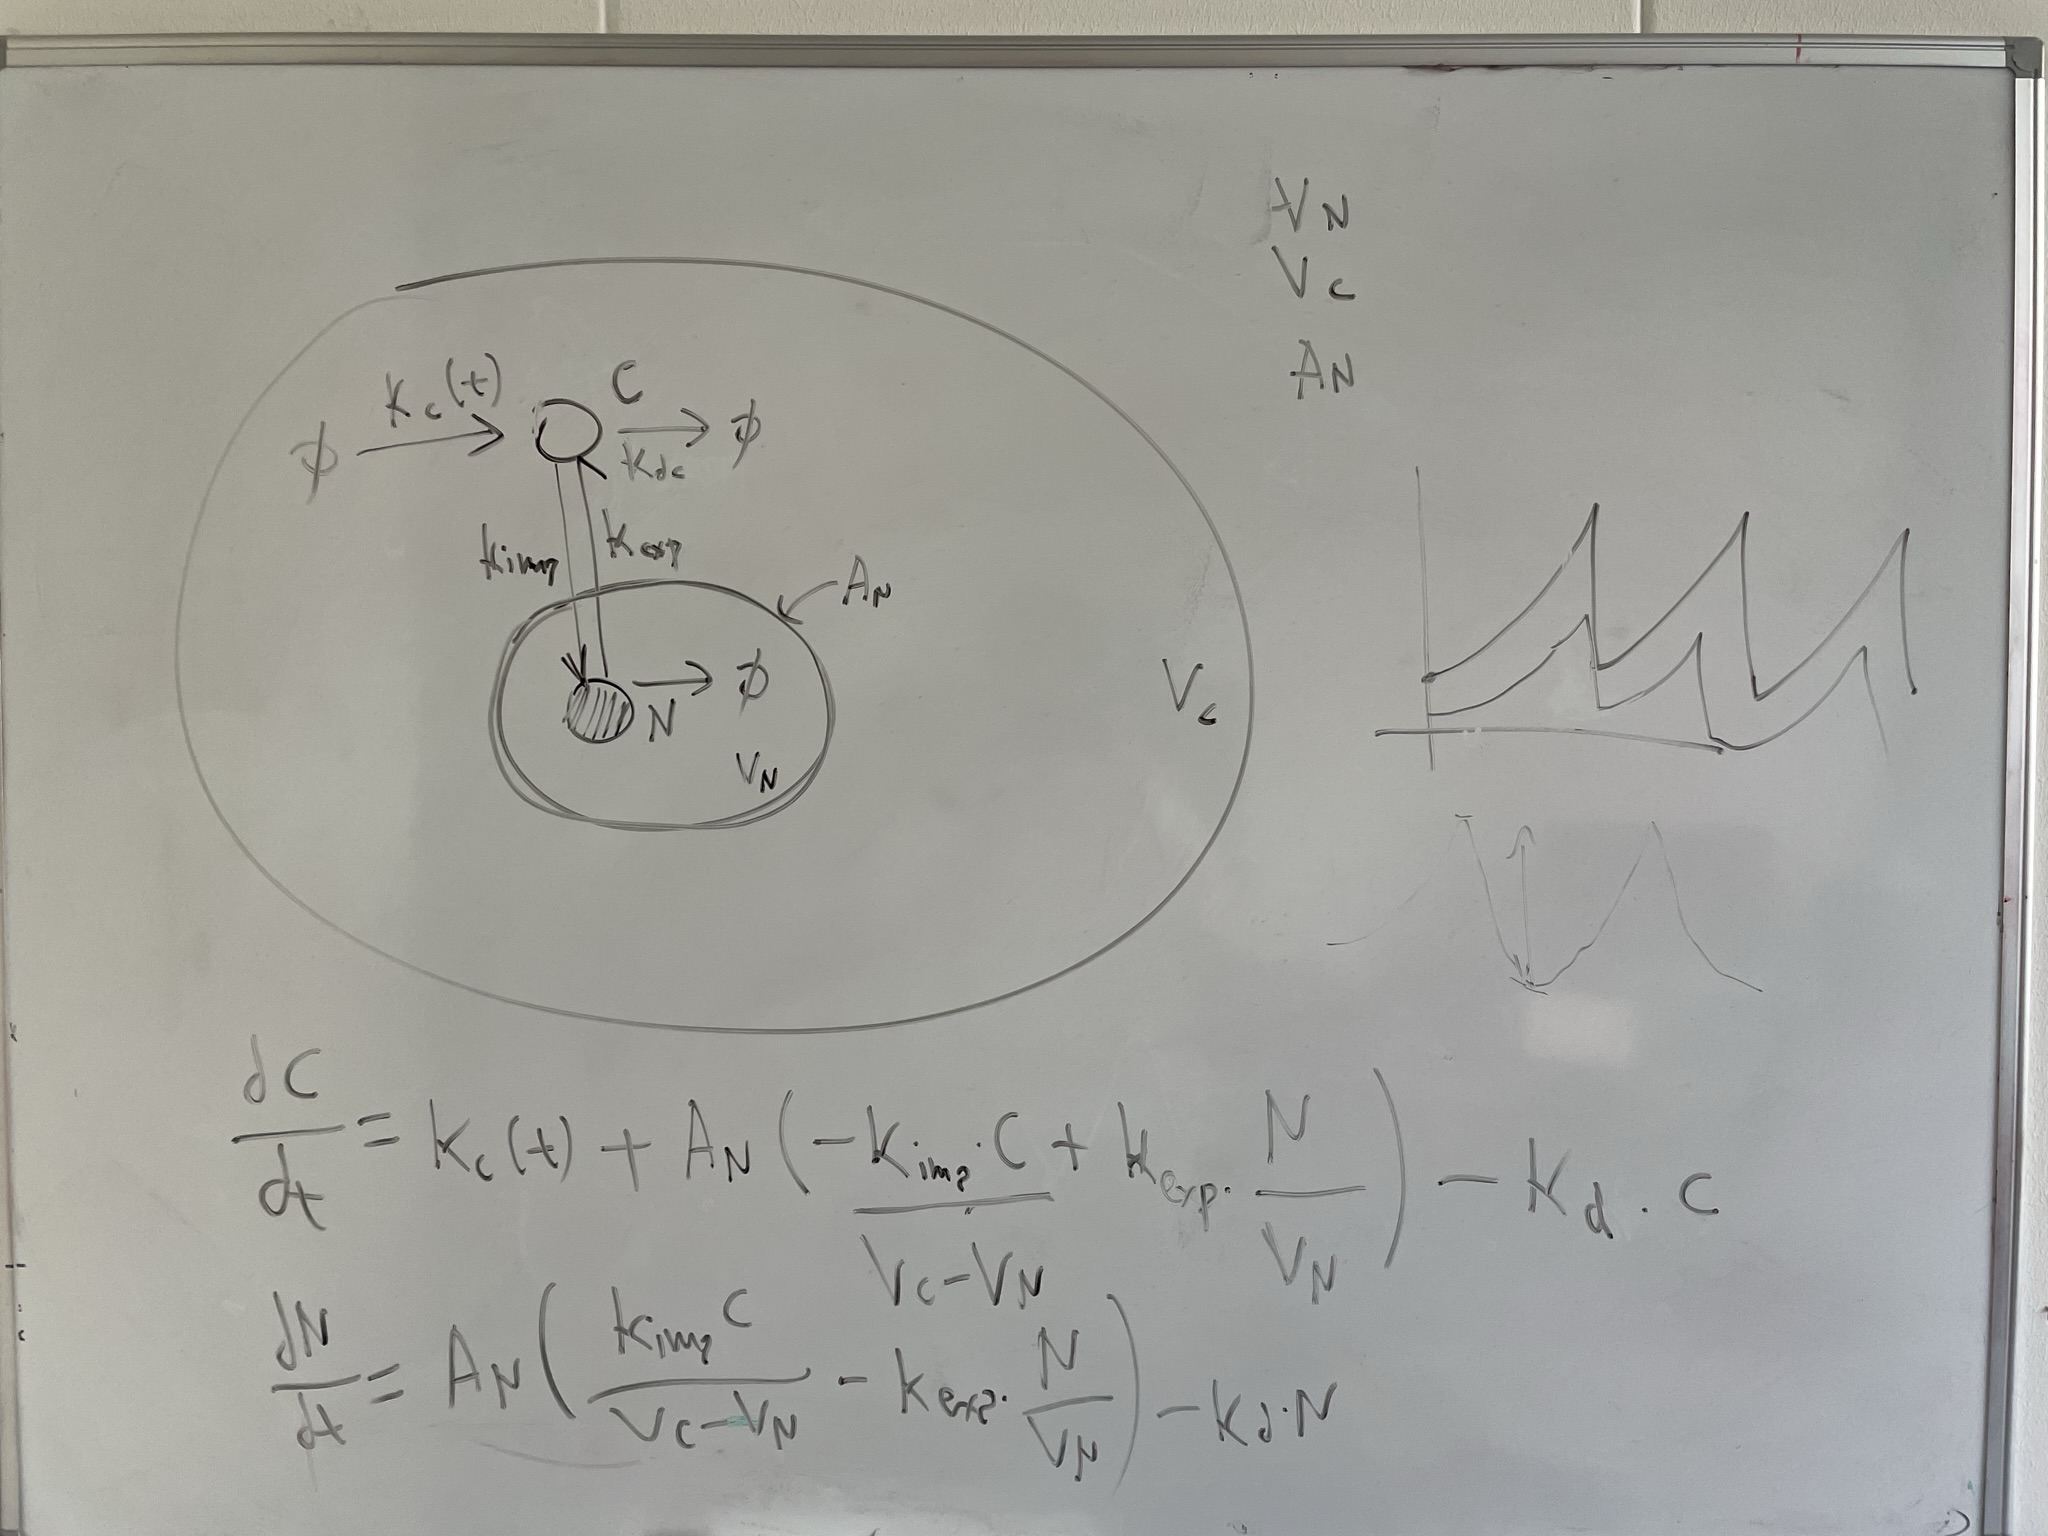 V_N
V_c
A_N
K_c(t)
C
ϕ
ϕ
K_dc
K_imp
K_exp
A_N
ϕ
N
V_N
V_c
dC/dt = K_c(t) + A_N (-K_imp · C / (V_C - V_N) + K_exp · N / V_N) - K_d · C
dN/dt = A_N (K_imp C / (V_C - V_N) - K_exp · N / V_N) - K_d · N